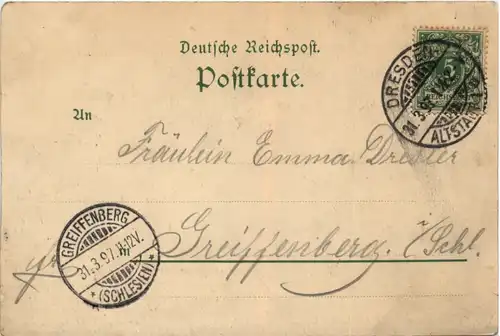 Deutsche Reichspost.
Postkarte.
DRESDEN
31.3.97
ALTSTADT
5
An
Fräulein Emma Drexler
GREIFFENBERG
31.3.97. 11-12V.
* (SCHLESIEN) *
in Greiffenberg. i/Schl.